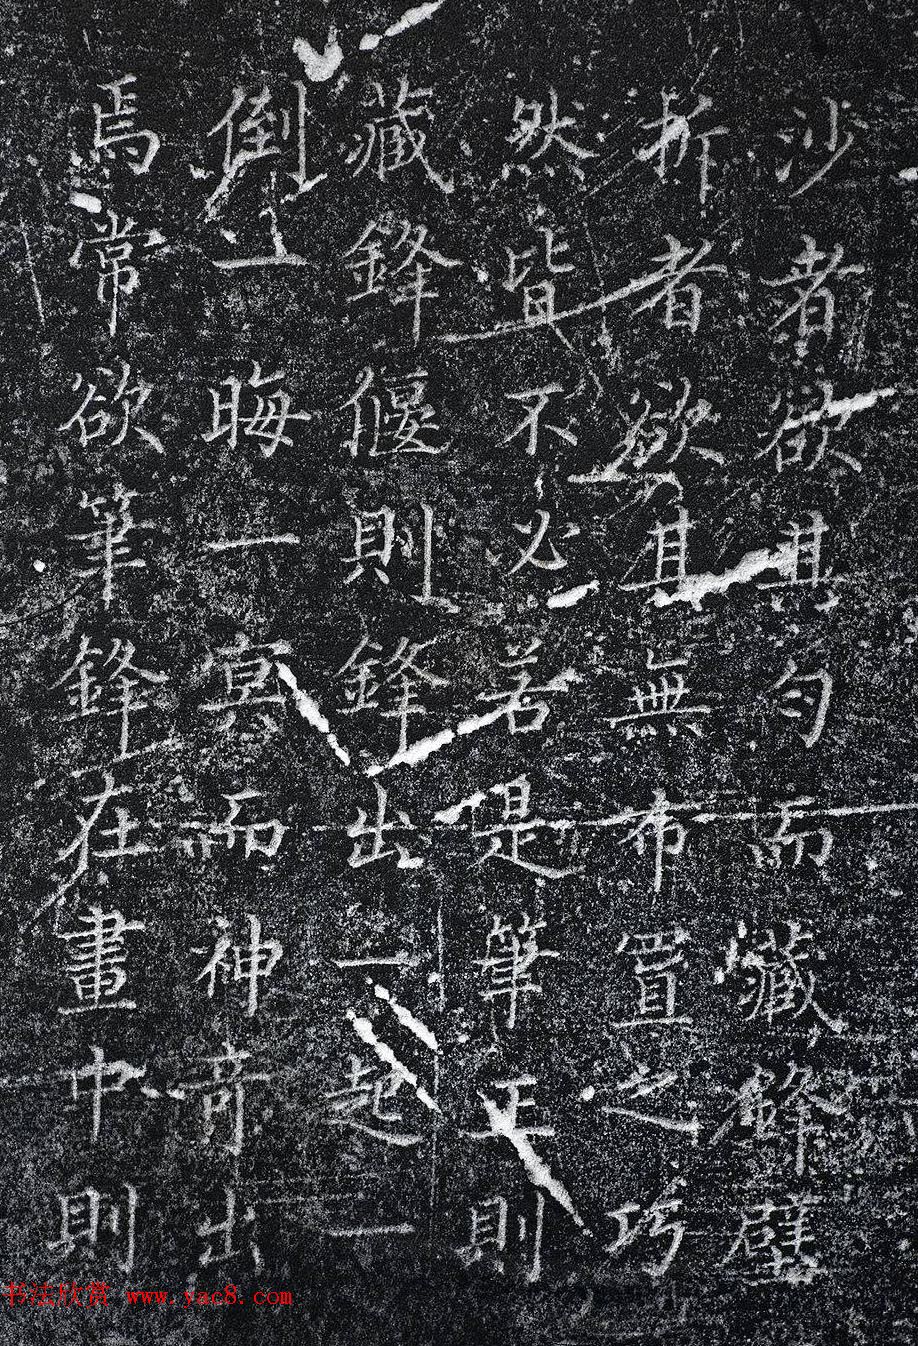 沙者欲其勻而藏鋒壁
拆者欲其無布置之巧
然皆不必若是筆正則
藏鋒偃則鋒出一起一
倒一晦一冥而神奇出
焉常欲筆鋒在畫中則
书法欣赏 www.yac8.com